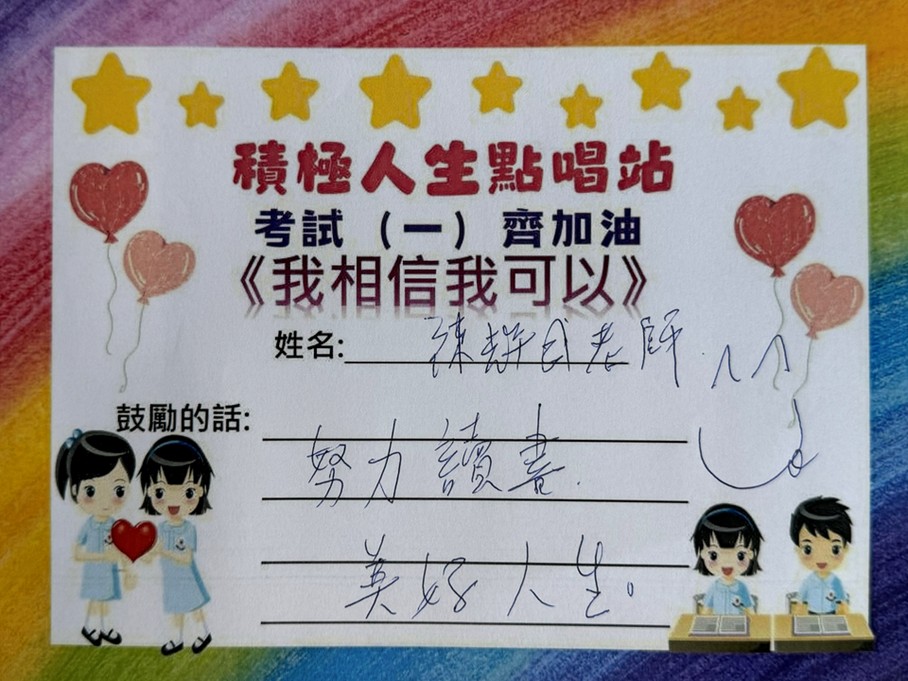 積極人生點唱站
考試（一）齊加油
《我相信我可以》
姓名: 老師
鼓勵的話:
努力讀書.
美好人生。